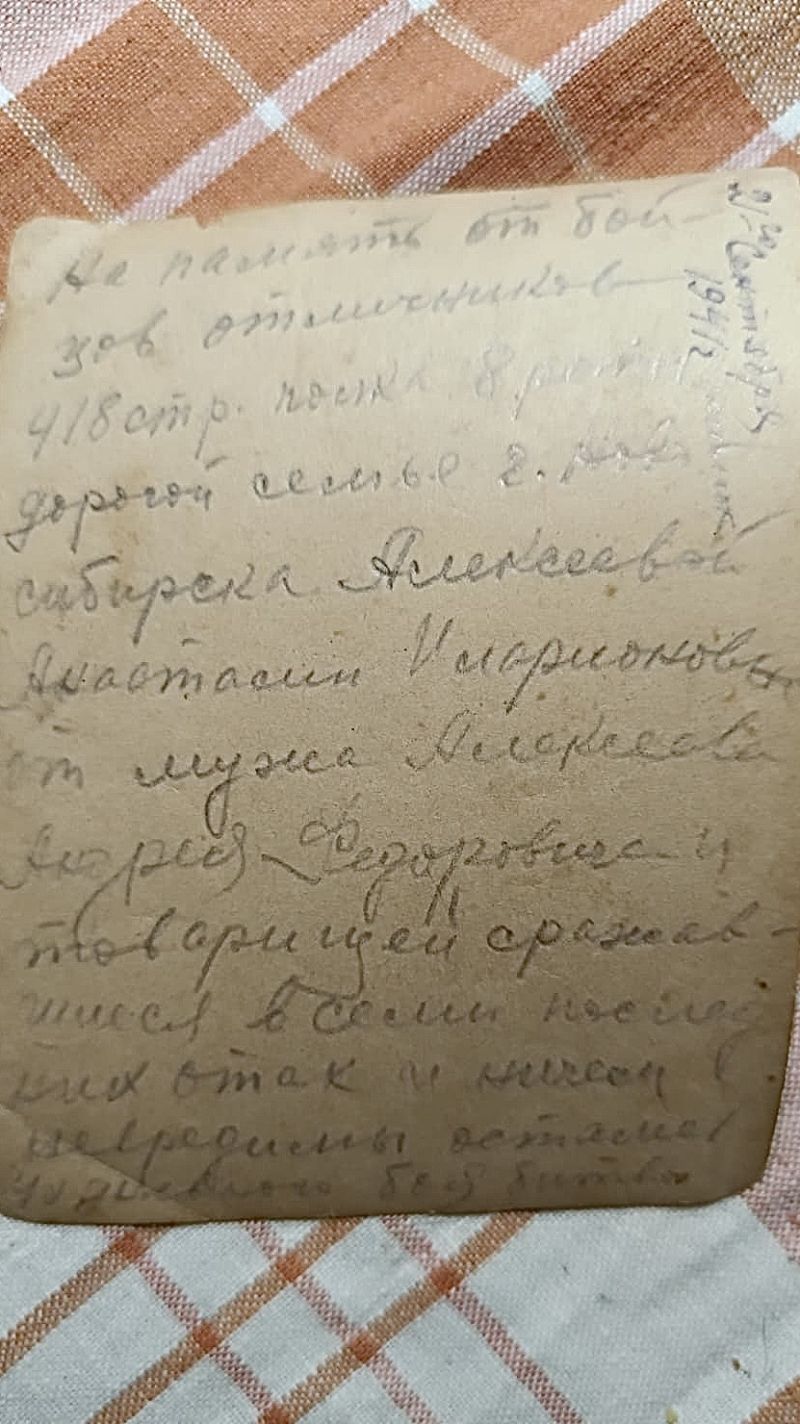 На память от бой-
цов отличников
418 стр. полка 8 роты
дорогой семье г. Ново
сибирска Алексеевой
Анастасии Иларионовы
от мужа Алексеева
Андрея Федоровича и
товарищей сражав-
шиеся в семи послед
них отак и ничем
невредимы остались
боя битвы
сентября
1941г